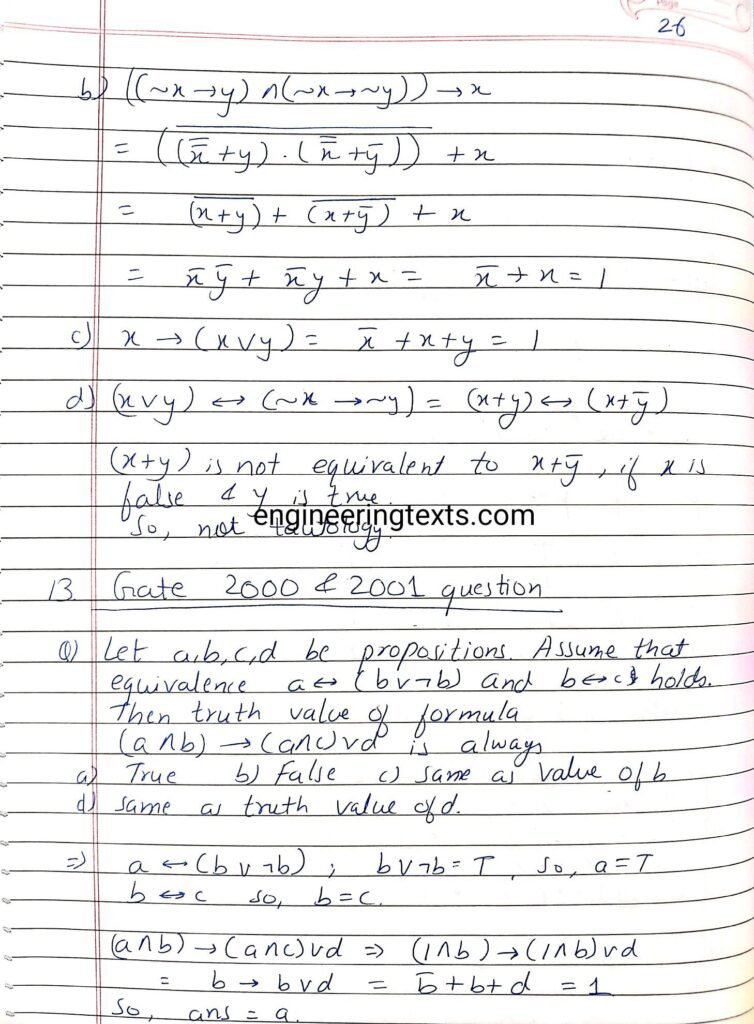 26
b) ((~x→y) ∧ (~x→~y)) → x
= ((x̿+y) · (x̿+ȳ))‾ + x
= (x+y)‾ + (x+ȳ)‾ + x
= x̄ȳ + x̄y + x = x̄ + x = 1
c) x → (x∨y) = x̄ + x + y = 1
d) (x∨y) ↔ (~x → ~y) = (x+y) ↔ (x+ȳ)
(x+y) is not equivalent to x+ȳ, if x is
false & y is true.
So, not tautology.
engineeringtexts.com
13. Gate 2000 & 2001 question
Q) Let a,b,c,d be propositions. Assume that
equivalence a↔(b∨¬b) and b↔c holds.
Then truth value of formula
(a∧b) → (a∧c)∨d is always
a) True b) False c) same as value of b
d) same as truth value of d.
⇒) a↔(b∨¬b) ; b∨¬b=T, so, a=T
b↔c so, b=c.
(a∧b)→(a∧c)∨d ⇒ (1∧b)→(1∧b)∨d
= b→b∨d = b̄+b+d = 1
So, ans = a.